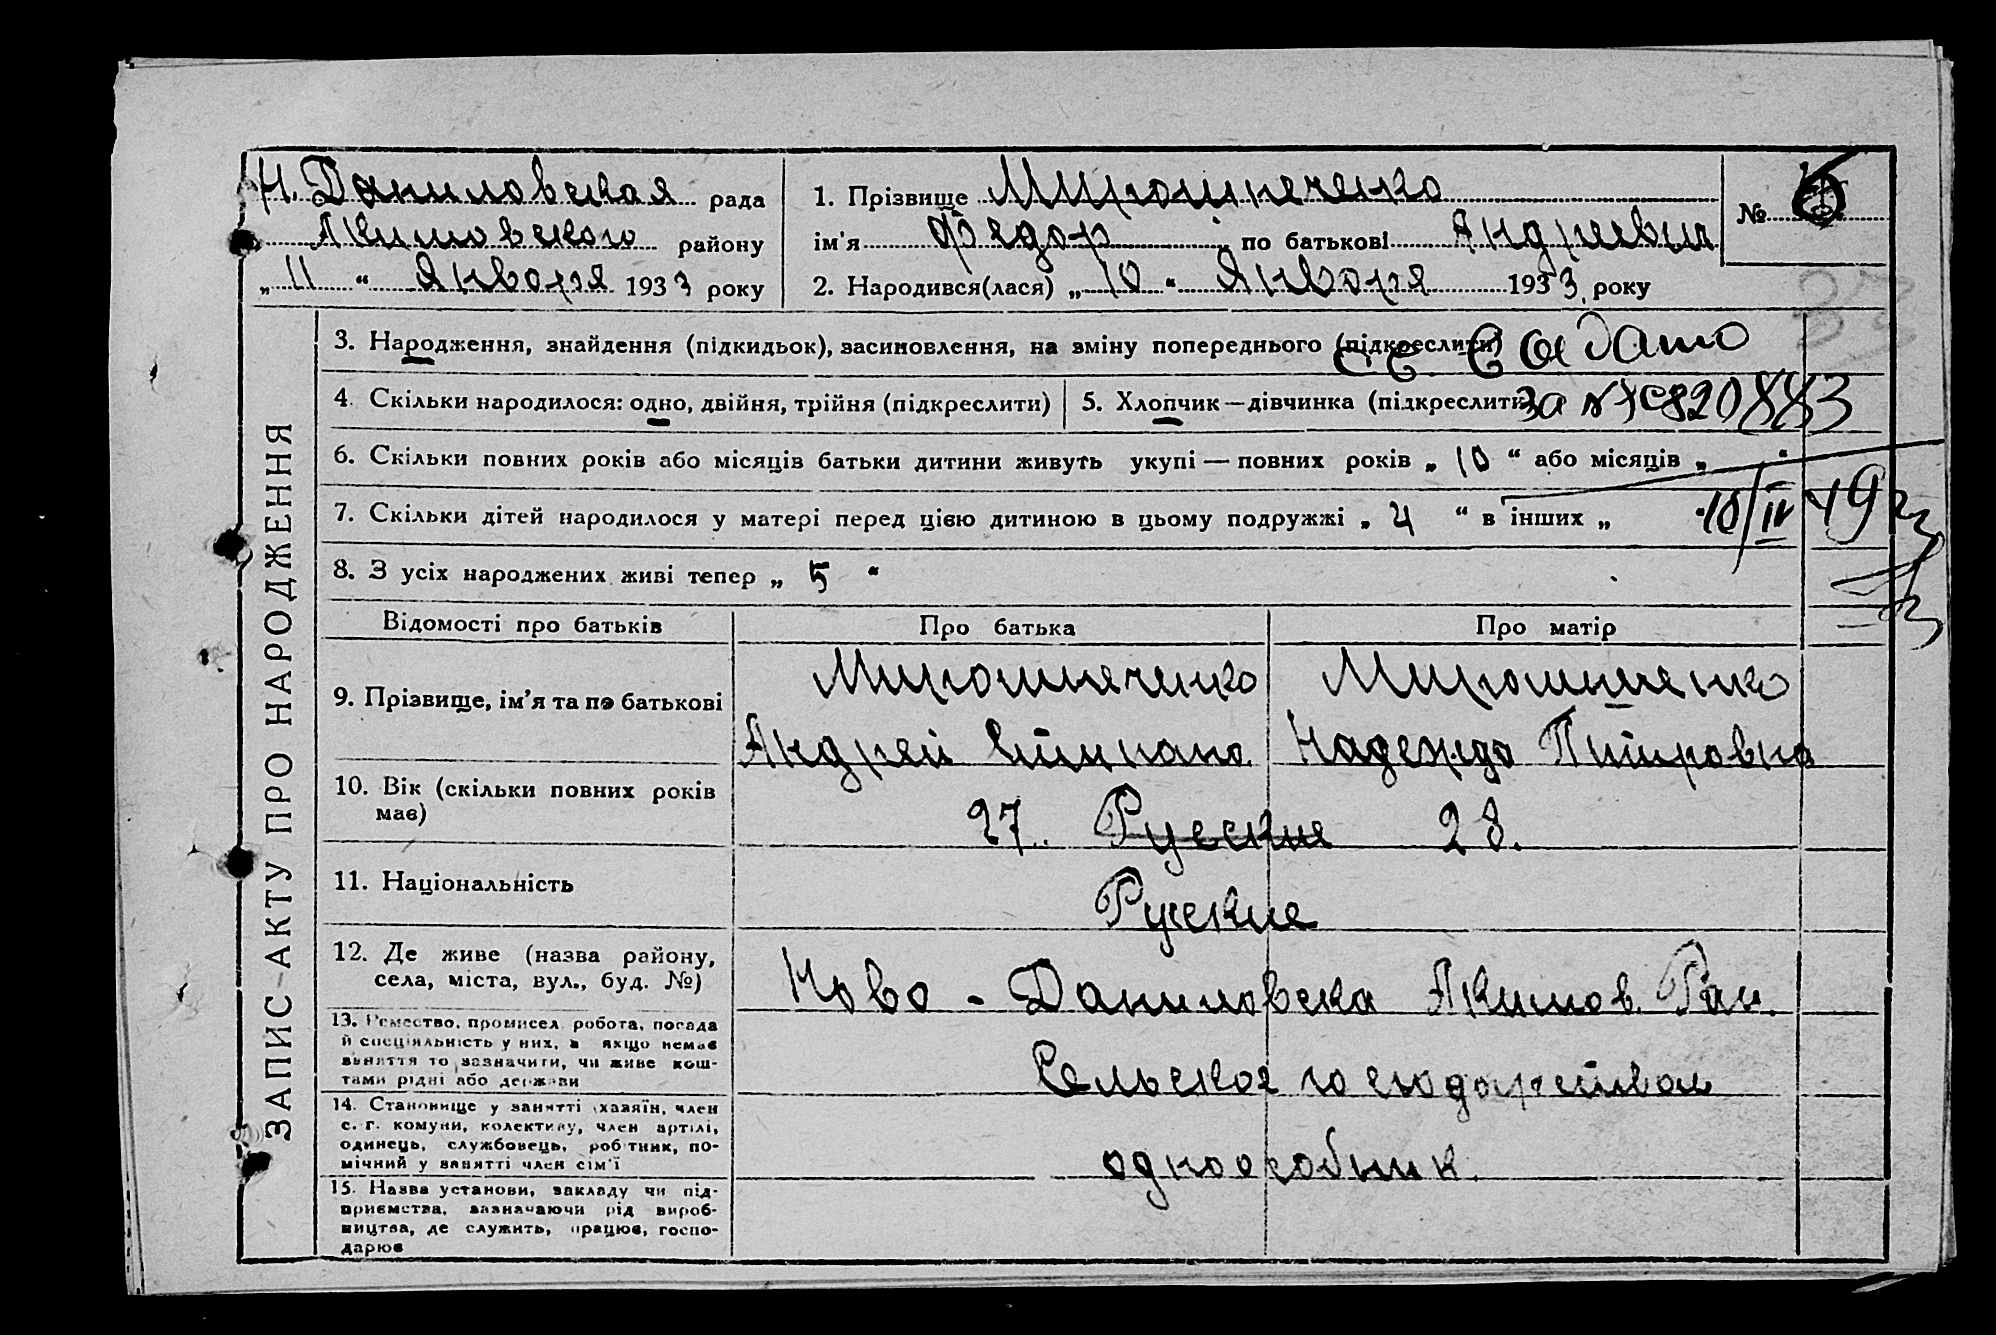 Н. Даниловская рада
Акимовского району
„ 11 “ Января 1933 року
1. Прізвище Мирошнеченко
ім'я Федор по батькові Андреевич
2. Народився(лася) „ 10 “ Января 1933 року
№ 6
ЗАПИС АКТУ ПРО НАРОДЖЕННЯ
3. Народження, знайдення (підкидьок), засиновлення, на зміну попереднього (підкреслити)
4. Скільки народилося: одно, двійня, трійня (підкреслити)
5. Хлопчик — дівчинка (підкреслити)
6. Скільки повних років або місяців батьки дитини живуть укупі — повних років „ 10 “ або місяців „ “
7. Скільки дітей народилося у матері перед цією дитиною в цьому подружжі „ 4 “ в інших „
10/IV 49 г
8. З усіх народжених живі тепер „ 5 “
Відомості про батьків
Про батька
Про матір
9. Прізвище, ім'я та по батькові
Мирошнеченко
Андрей
Мирошнеченко
Надежда Питровна
10. Вік (скільки повних років має)
27. Русские 28.
11. Національність
Русские
12. Де живе (назва району, села, міста, вул., буд. №)
Ново - Даниловска Акимов. Рай.
13. Ремество, промисел, робота, посада
й спеціяльність у них, а якщо немає
заняття то зазначити, чи живе кош-
тами рідні або держави
Сельское
14. Становище у занятті (хазяїн, член
с.-г. комуни, колективу, член артілі,
одинець, службовець, робітник, по-
мічний у занятті член сім'ї
одноособник.
15. Назва установи, закладу чи під-
приємства, зазначаючи рід вироб-
ництва, де служить, працює, госпо-
дарює